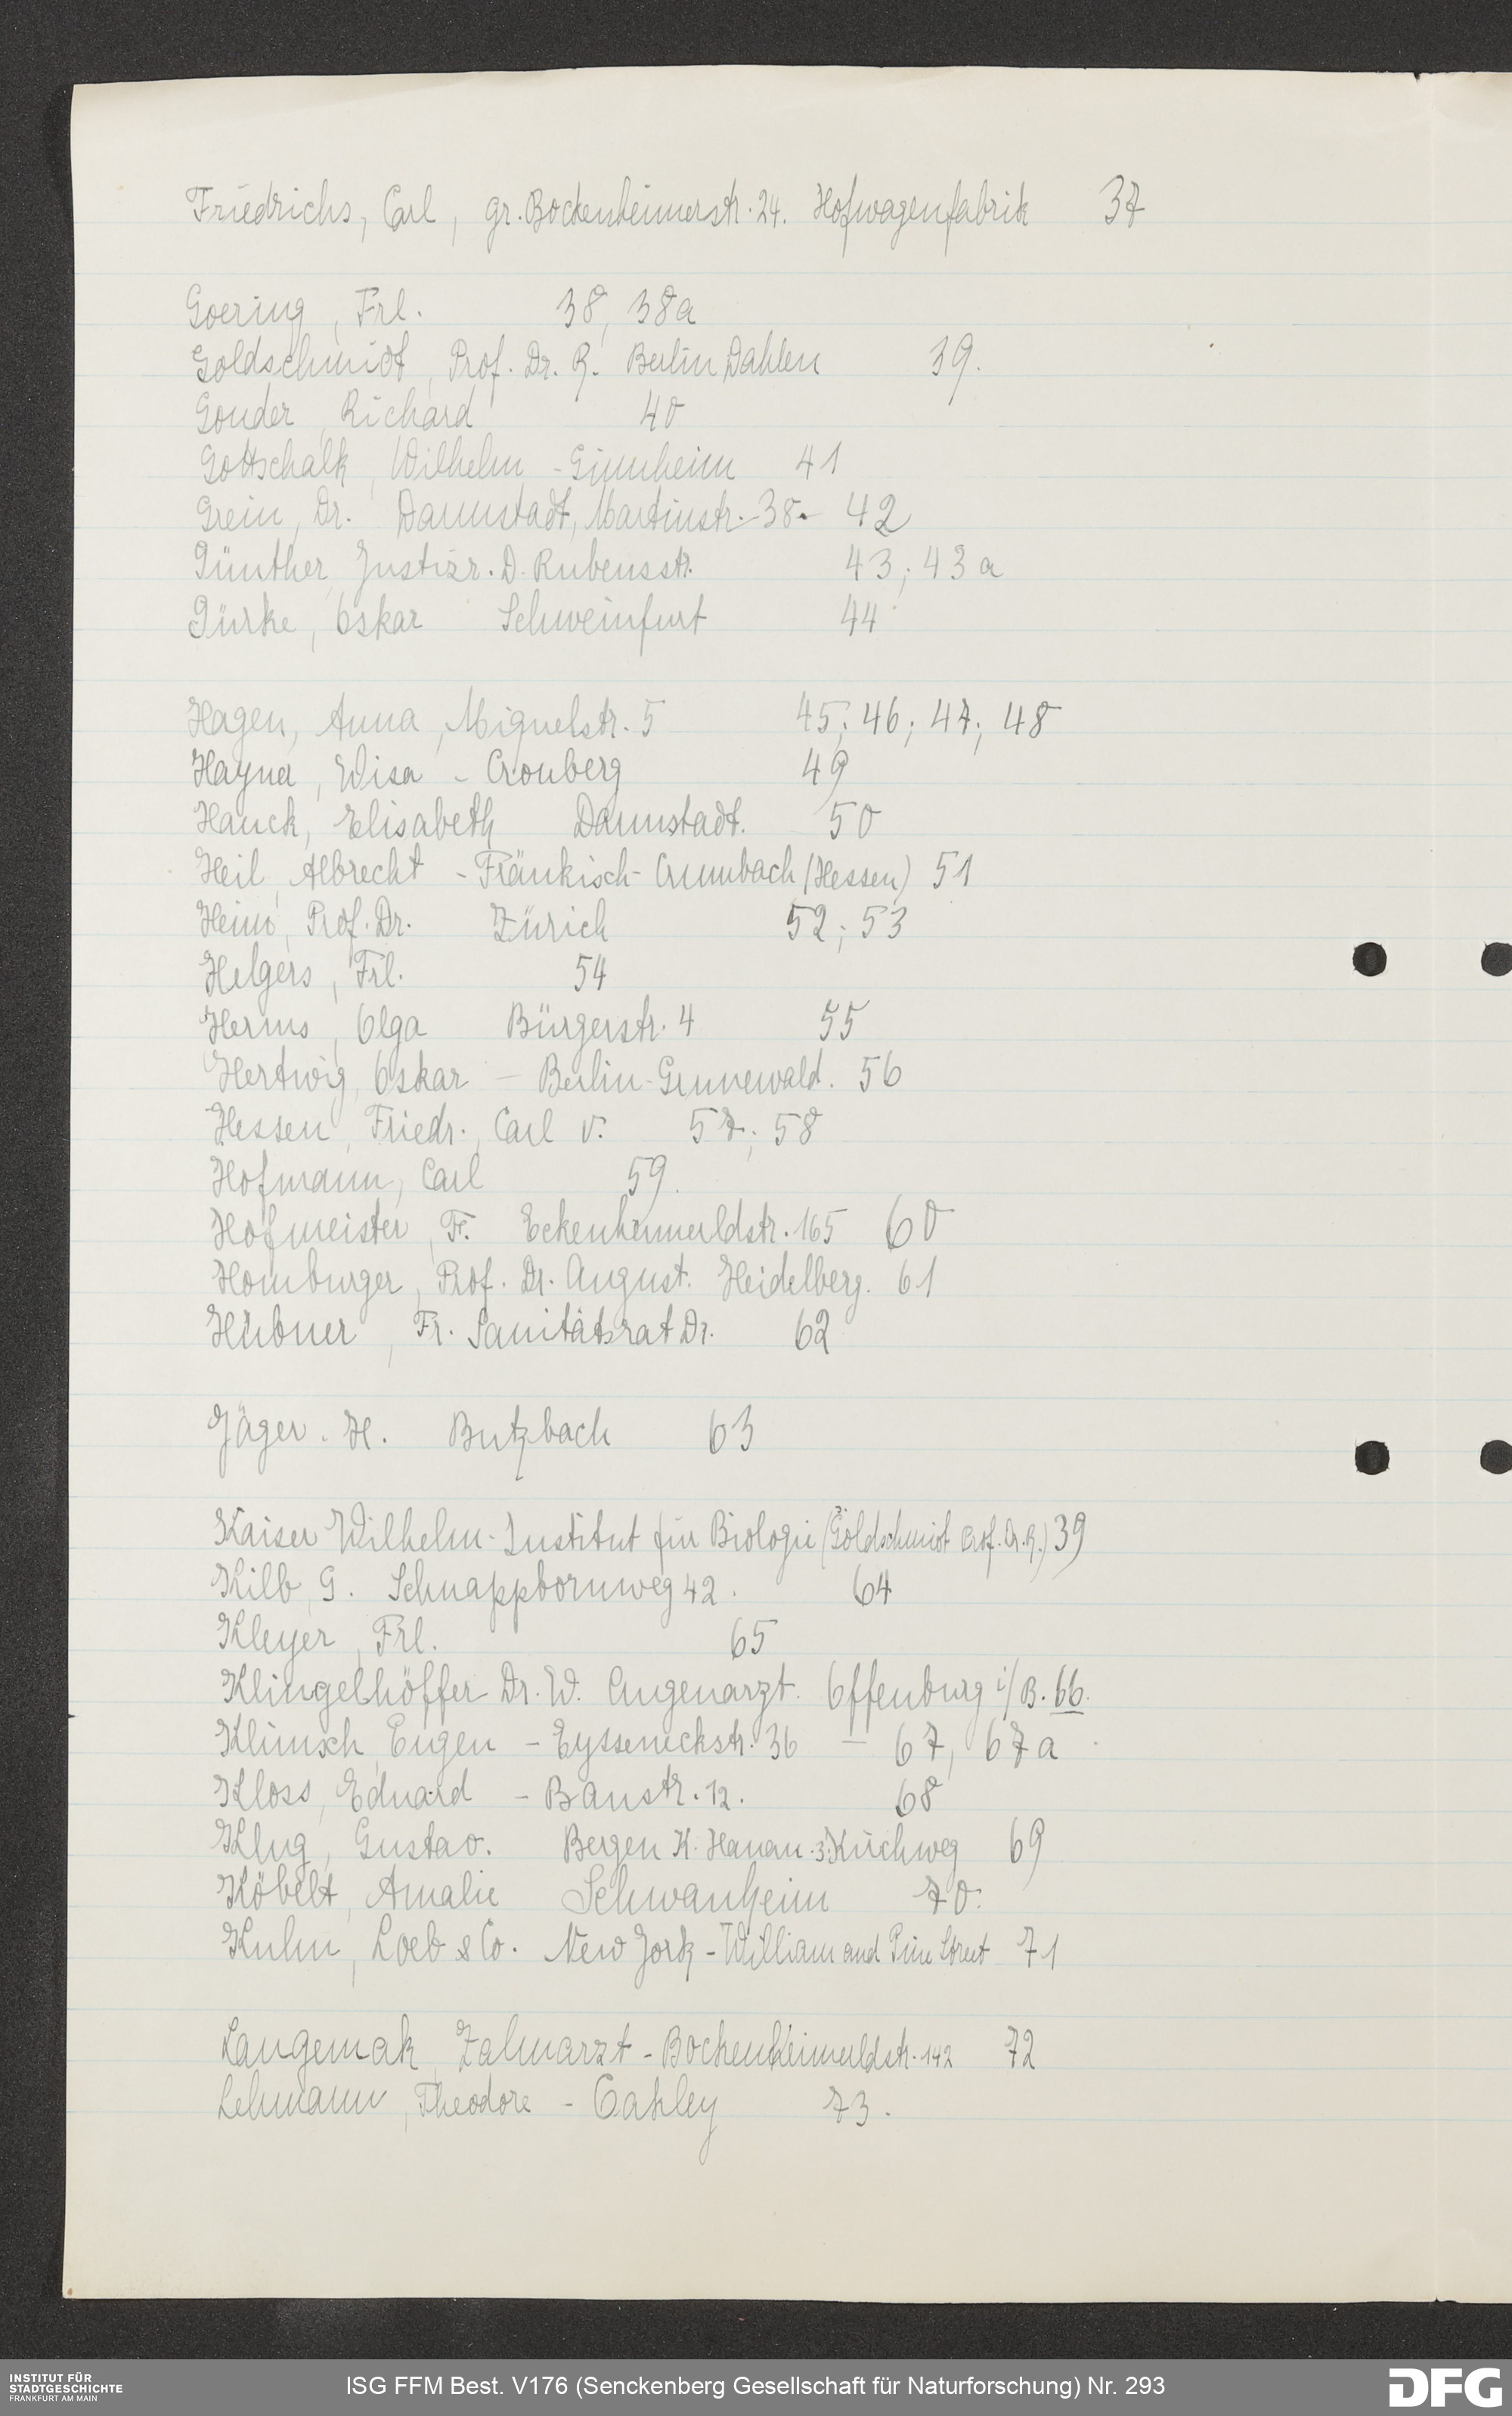 Friedrichs, Carl, gr. Bockenheimerstr. 24. Hofwagenfabrik 37
Goering, Frl. 38, 38a
Goldschmidt, Prof. Dr. R. Berlin Dahlen 39.
Gonder, Richard 40
Gottschalk, Wilhelm - Ginnheim 41
Grein, Dr. Darmstadt, Martinstr. 38. 42
Günther, Justizr. D. Rubensstr. 43; 43a
Gürke, Oskar Schweinfurt 44
Hagen, Anna, Miquelstr. 5 45; 46; 47; 48
Hayna, Wisa - Cronberg 49
Hauck, Elisabeth Darmstadt. 50
Heil, Albrecht - Fränkisch-Crumbach (Hessen) 51
Heim, Prof. Dr. Zürich 52; 53
Helgers, Frl. 54
Herms, Olga Bürgerstr. 4 55
Hertwig, Oskar - Berlin-Grunewald. 56
Hessen, Friedr. Carl v. 57; 58
Hofmann, Carl 59.
Hofmeister, F. Eckenheimerldstr. 165 60
Homburger, Prof. Dr. August. Heidelberg. 61
Hübner, Fr. Sanitätsrat Dr. 62
Jäger. H. Butzbach 63
Kaiser Wilhelm-Institut für Biologie (Goldschmidt Prof. Dr. R.) 39
Kilb, G. Schnappbornweg 42. 64
Kleyer, Frl. 65
Klingelhöffer Dr. W. Augenarzt. Offenburg i/B. 66.
Klimsch, Eugen - Eysseneckstr. 36 - 67, 67a
Kloss, Eduard - Baustr. 12. 68
Klug, Gustav. Bergen K. Hanau 3. Kirchweg 69
Köbelt, Amalie Schwanheim 70.
Kuhn, Loeb & Co. New Jork - William and Pine Street 71
Langemak, Zahnarzt - Bockenheimerldstr. 142 72
Lehmann, Theodore - Oakley 73.
INSTITUT FÜR
STADTGESCHICHTE
FRANKFURT AM MAIN
ISG FFM Best. V176 (Senckenberg Gesellschaft für Naturforschung) Nr. 293
DFG